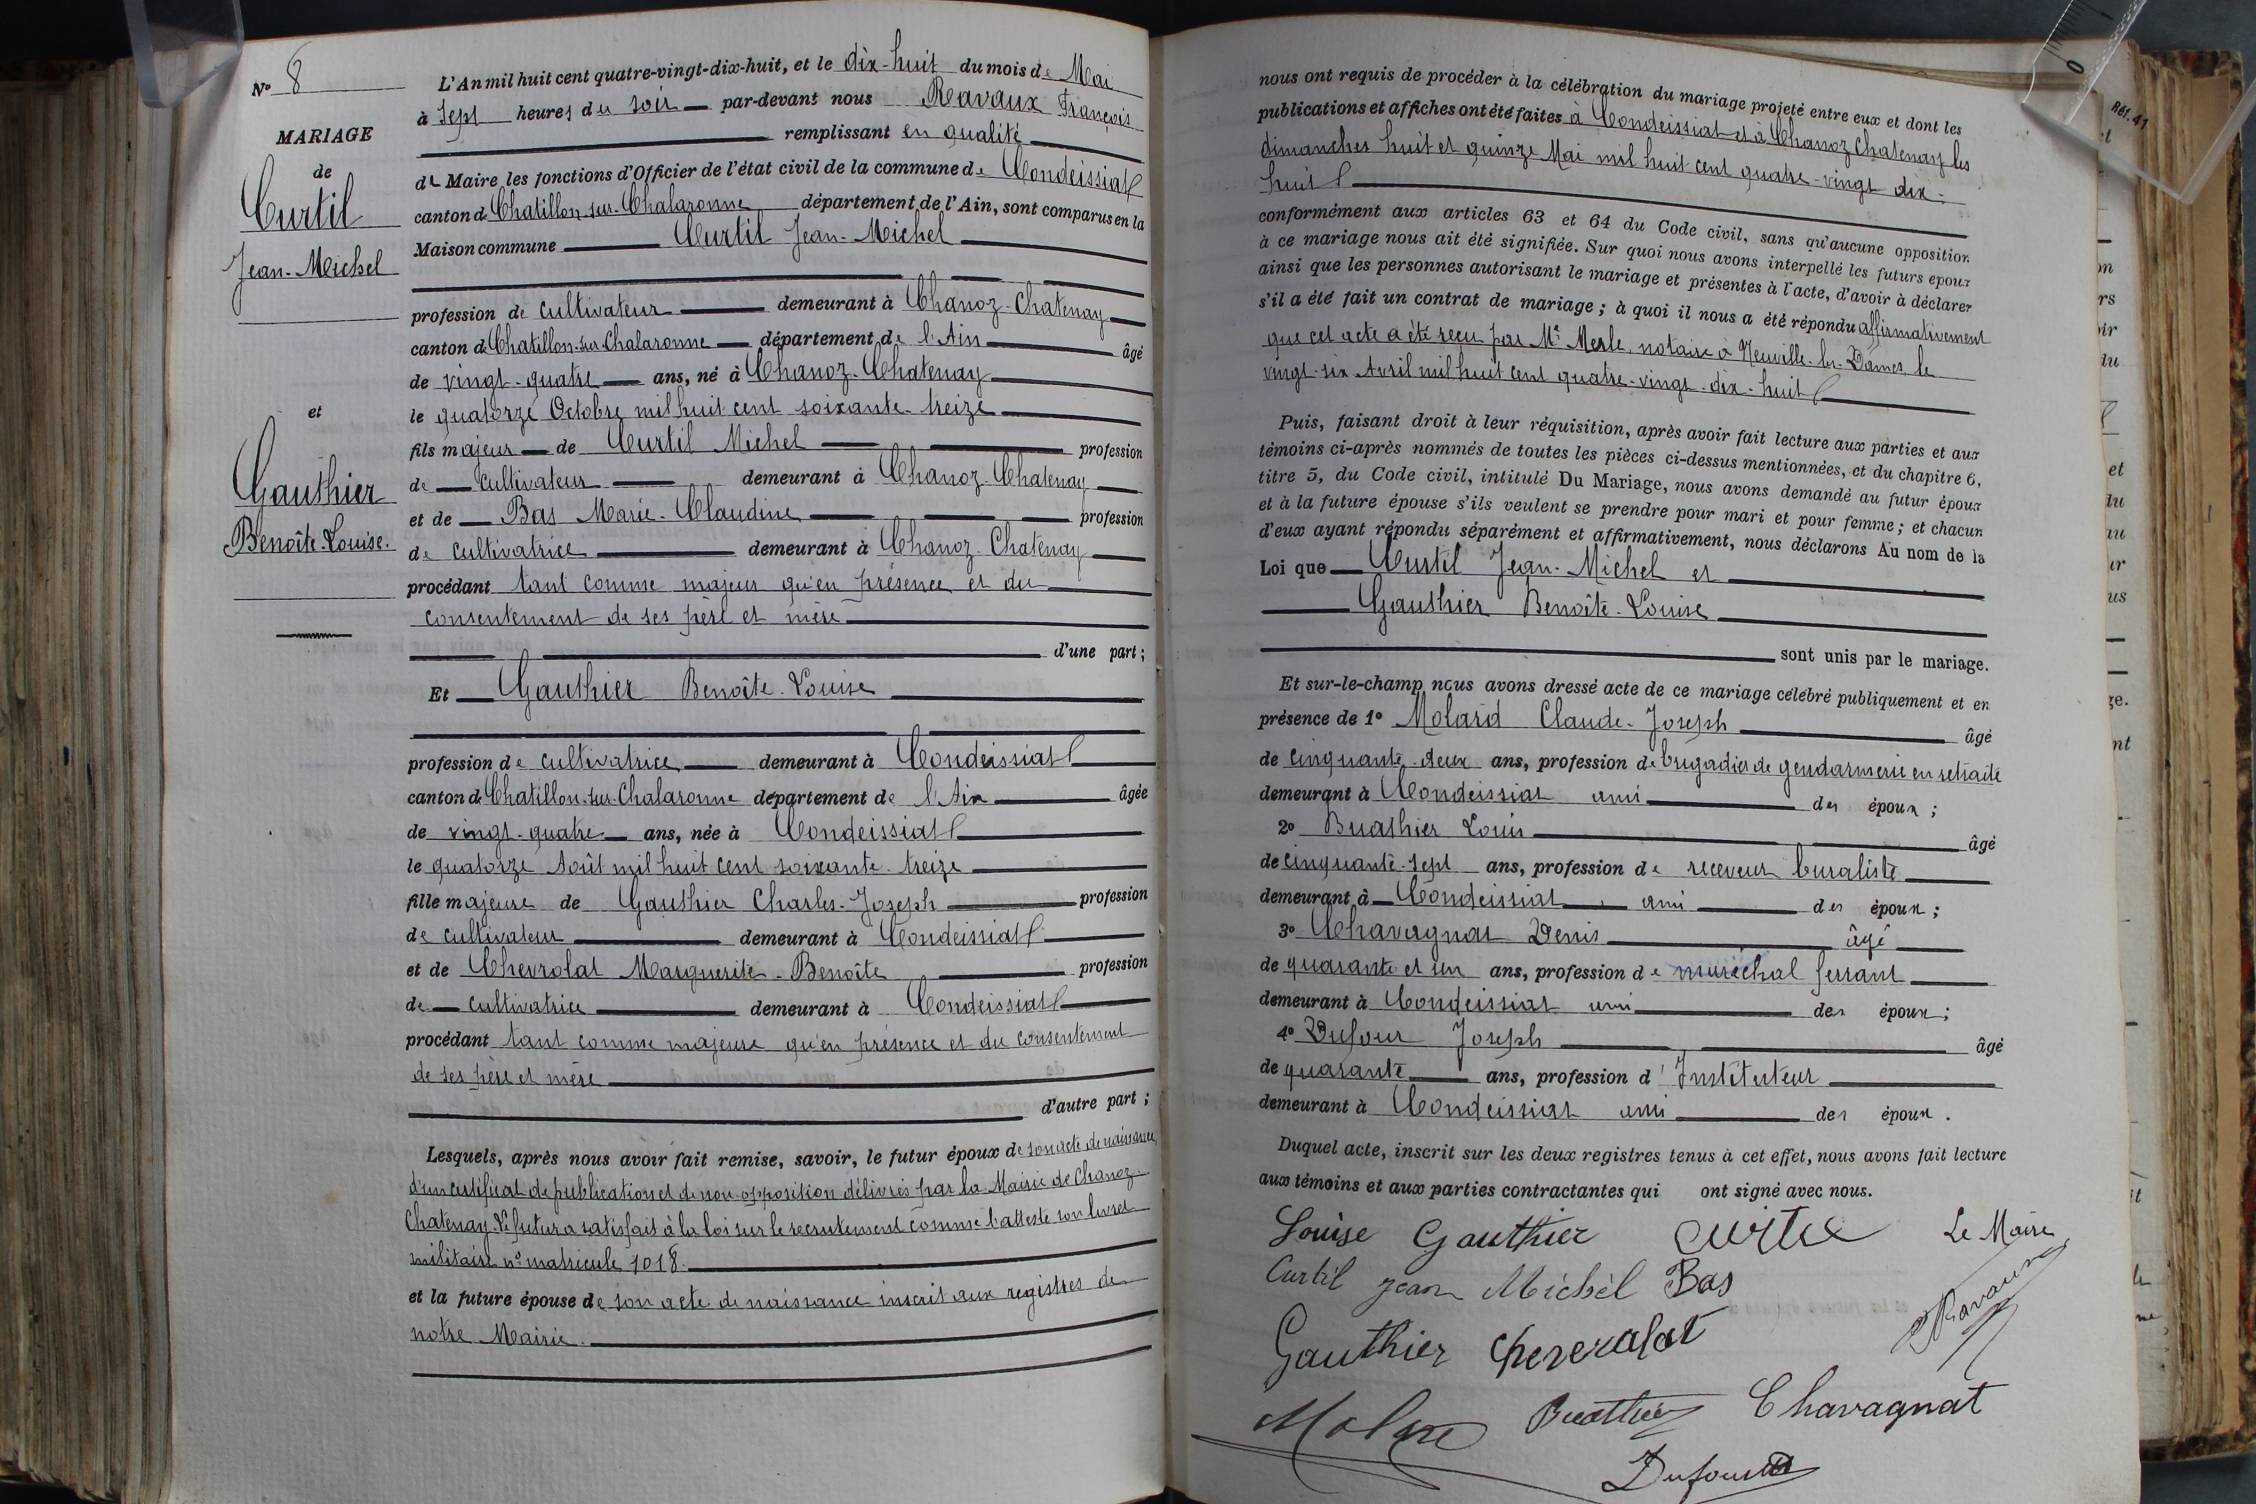 N° 8
MARIAGE
de
Curtil
Jean-Michel
et
Gauthier
Benoîte-Louise.
L'An mil huit cent quatre-vingt-dix-huit, et le dix-huit du mois de Mai
à sept heures du soir par-devant nous Ravaux François
remplissant en qualité
de Maire les fonctions d'Officier de l'état civil de la commune de Condeissiat
canton de Chatillon-sur-Chalaronne département de l'Ain, sont comparus en la
Maison commune Curtil Jean-Michel
profession de cultivateur demeurant à Chanoz-Chatenay
canton de Chatillon-sur-Chalaronne département de l'Ain âgé
de vingt-quatre ans, né à Chanoz-Chatenay
le quatorze Octobre mil huit cent soixante-treize
fils majeur de Curtil Michel profession
de cultivateur demeurant à Chanoz-Chatenay
et de Bas Marie-Claudine profession
de cultivatrice demeurant à Chanoz-Chatenay
procédant tant comme majeur qu'en présence et du
consentement de ses père et mère
d'une part;
Et Gauthier Benoîte-Louise
profession de cultivatrice demeurant à Condeissiat
canton de Chatillon-sur-Chalaronne département de l'Ain âgée
de vingt-quatre ans, née à Condeissiat
le quatorze Août mil huit cent soixante-treize
fille majeure de Gauthier Charles-Joseph profession
de cultivateur demeurant à Condeissiat
et de Chevrolat Marguerite-Benoîte profession
de cultivatrice demeurant à Condeissiat
procédant tant comme majeure qu'en présence et du consentement
de ses père et mère
d'autre part;
Lesquels, après nous avoir fait remise, savoir, le futur époux de son acte de naissance
d'un certificat de publication et de non-opposition délivrés par la Mairie de Chanoz-
Chatenay. Le futur a satisfait à la loi sur le recrutement comme l'atteste son livret
militaire n° matricule 1018.
et la future épouse de son acte de naissance inscrit aux registres de
notre Mairie.
nous ont requis de procéder à la célébration du mariage projeté entre eux et dont les
publications et affiches ont été faites à Condeissiat et à Chanoz Chatenay les
dimanches huit et quinze Mai mil huit cent quatre-vingt dix-
huit
conformément aux articles 63 et 64 du Code civil, sans qu'aucune opposition
à ce mariage nous ait été signifiée. Sur quoi nous avons interpellé les futurs époux
ainsi que les personnes autorisant le mariage et présentes à l'acte, d'avoir à déclarer
s'il a été fait un contrat de mariage; à quoi il nous a été répondu affirmativement
que cet acte a été reçu par Me Merle, notaire à Neuville-les-Dames, le
vingt-six Avril mil huit cent quatre-vingt-dix-huit
Puis, faisant droit à leur réquisition, après avoir fait lecture aux parties et aux
témoins ci-après nommés de toutes les pièces ci-dessus mentionnées, et du chapitre 6,
titre 5, du Code civil, intitulé Du Mariage, nous avons demandé au futur époux
et à la future épouse s'ils veulent se prendre pour mari et pour femme; et chacun
d'eux ayant répondu séparément et affirmativement, nous déclarons Au nom de la
Loi que Curtil Jean-Michel et
Gauthier Benoîte-Louise
sont unis par le mariage.
Et sur-le-champ nous avons dressé acte de ce mariage célébré publiquement et en
présence de 1° Molard Claude-Joseph âgé
de cinquante-deux ans, profession de brigadier de gendarmerie en retraite
demeurant à Condeissiat ami des époux;
2° Buathier Louis âgé
de cinquante-sept ans, profession de receveur buraliste
demeurant à Condeissiat, ami des époux;
3° Chavagnat Denis âgé
de quarante et un ans, profession de maréchal ferrant
demeurant à Condeissiat ami des époux;
4° Dufour Joseph âgé
de quarante ans, profession d'Instituteur
demeurant à Condeissiat ami des époux.
Duquel acte, inscrit sur les deux registres tenus à cet effet, nous avons fait lecture
aux témoins et aux parties contractantes qui ont signé avec nous.
Louise Gauthier Curtil Le Maire
Curtil Jean Michel Bas
Ravaux
Gauthier Cheveralat
Molard Buathier Chavagnat
Dufour
Réf. 41
0